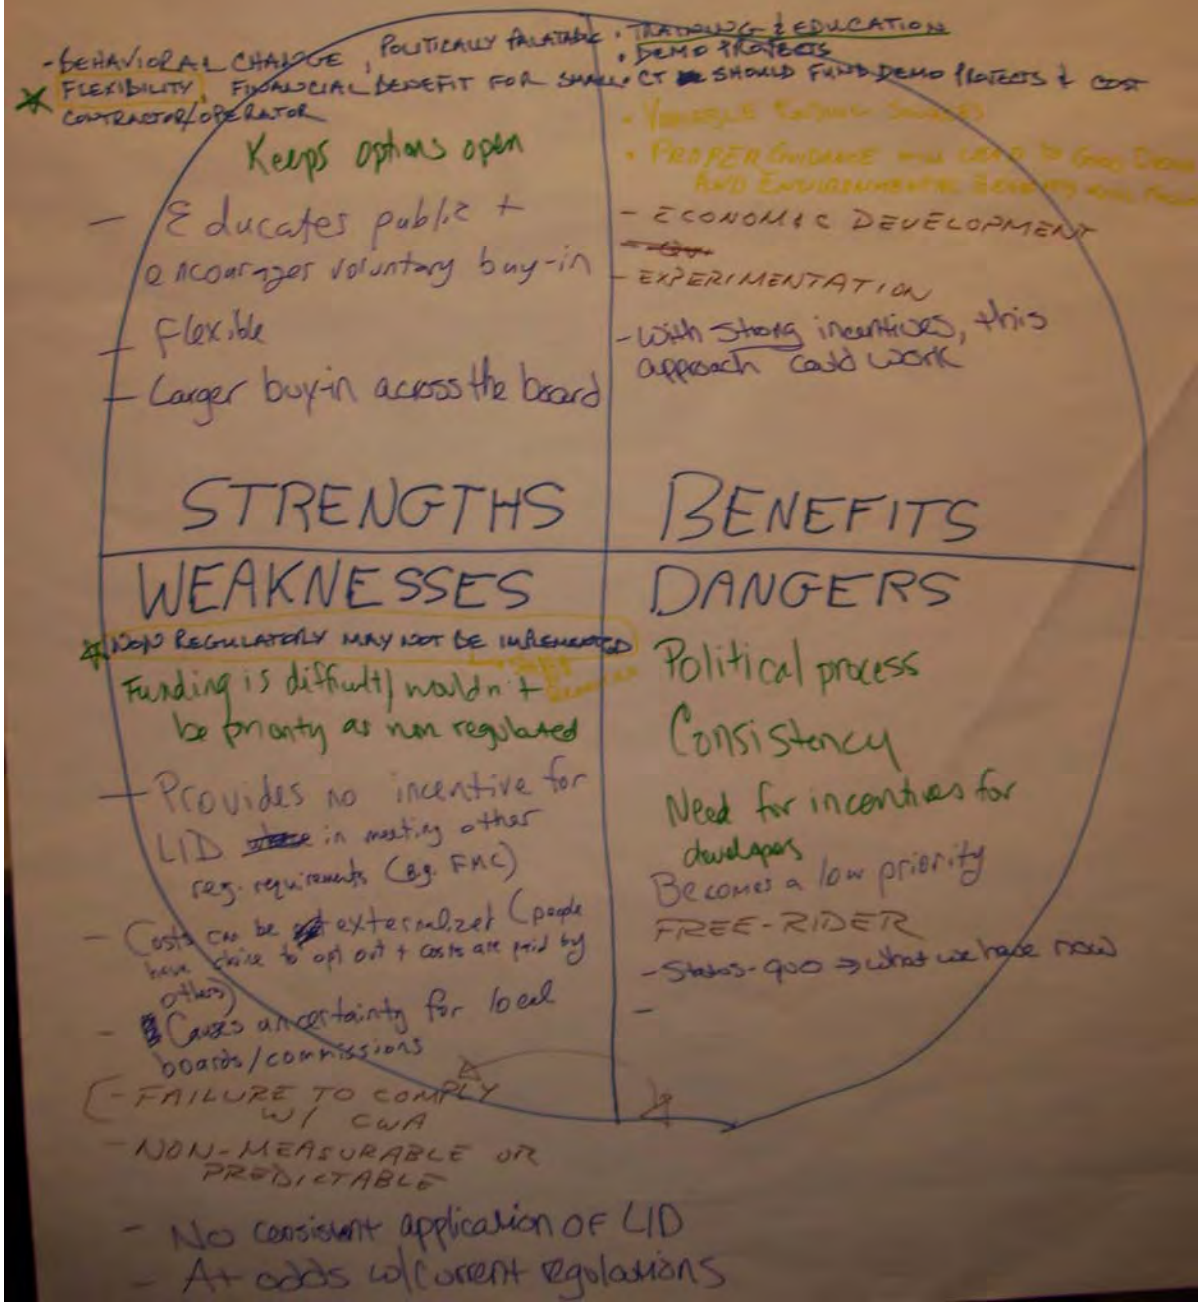 - BEHAVIORAL CHANGE, POLITICALLY PALATABLE
FLEXIBILITY, FINANCIAL BENEFIT FOR SMALL
CONTRACTOR/OPERATOR
Keeps options open
- Educates public +
encourages voluntary buy-in
- Flexible
- Larger buy-in across the board
STRENGTHS
• TRAINING & EDUCATION
• DEMO PROJECTS
• CT SHOULD FUND DEMO PROJECTS & COST
• VARIABLE FUNDING SOURCES
• PROPER GUIDANCE WILL LEAD TO GOOD DESIGN
AND ENVIRONMENTAL BENEFITS
- ECONOMIC DEVELOPMENT
- EXPERIMENTATION
- With strong incentives, this
approach could work
BENEFITS
WEAKNESSES
NON REGULATORY MAY NOT BE IMPLEMENTED
Funding is difficult/wouldn't
be priority as non regulated
- Provides no incentive for
LID in meeting other
reg. requirements (e.g. FMC)
- Costs can be externalized (people
have choice to opt out + costs are paid by
others)
- Causes uncertainty for local
boards/commissions
- FAILURE TO COMPLY
W/ CWA
- NON-MEASURABLE OR
PREDICTABLE
- No consistent application OF LID
- At odds w/current regulations
DANGERS
Political process
Consistency
Need for incentives for
developers
Becomes a low priority
FREE-RIDER
- Status-quo → what we have now
-